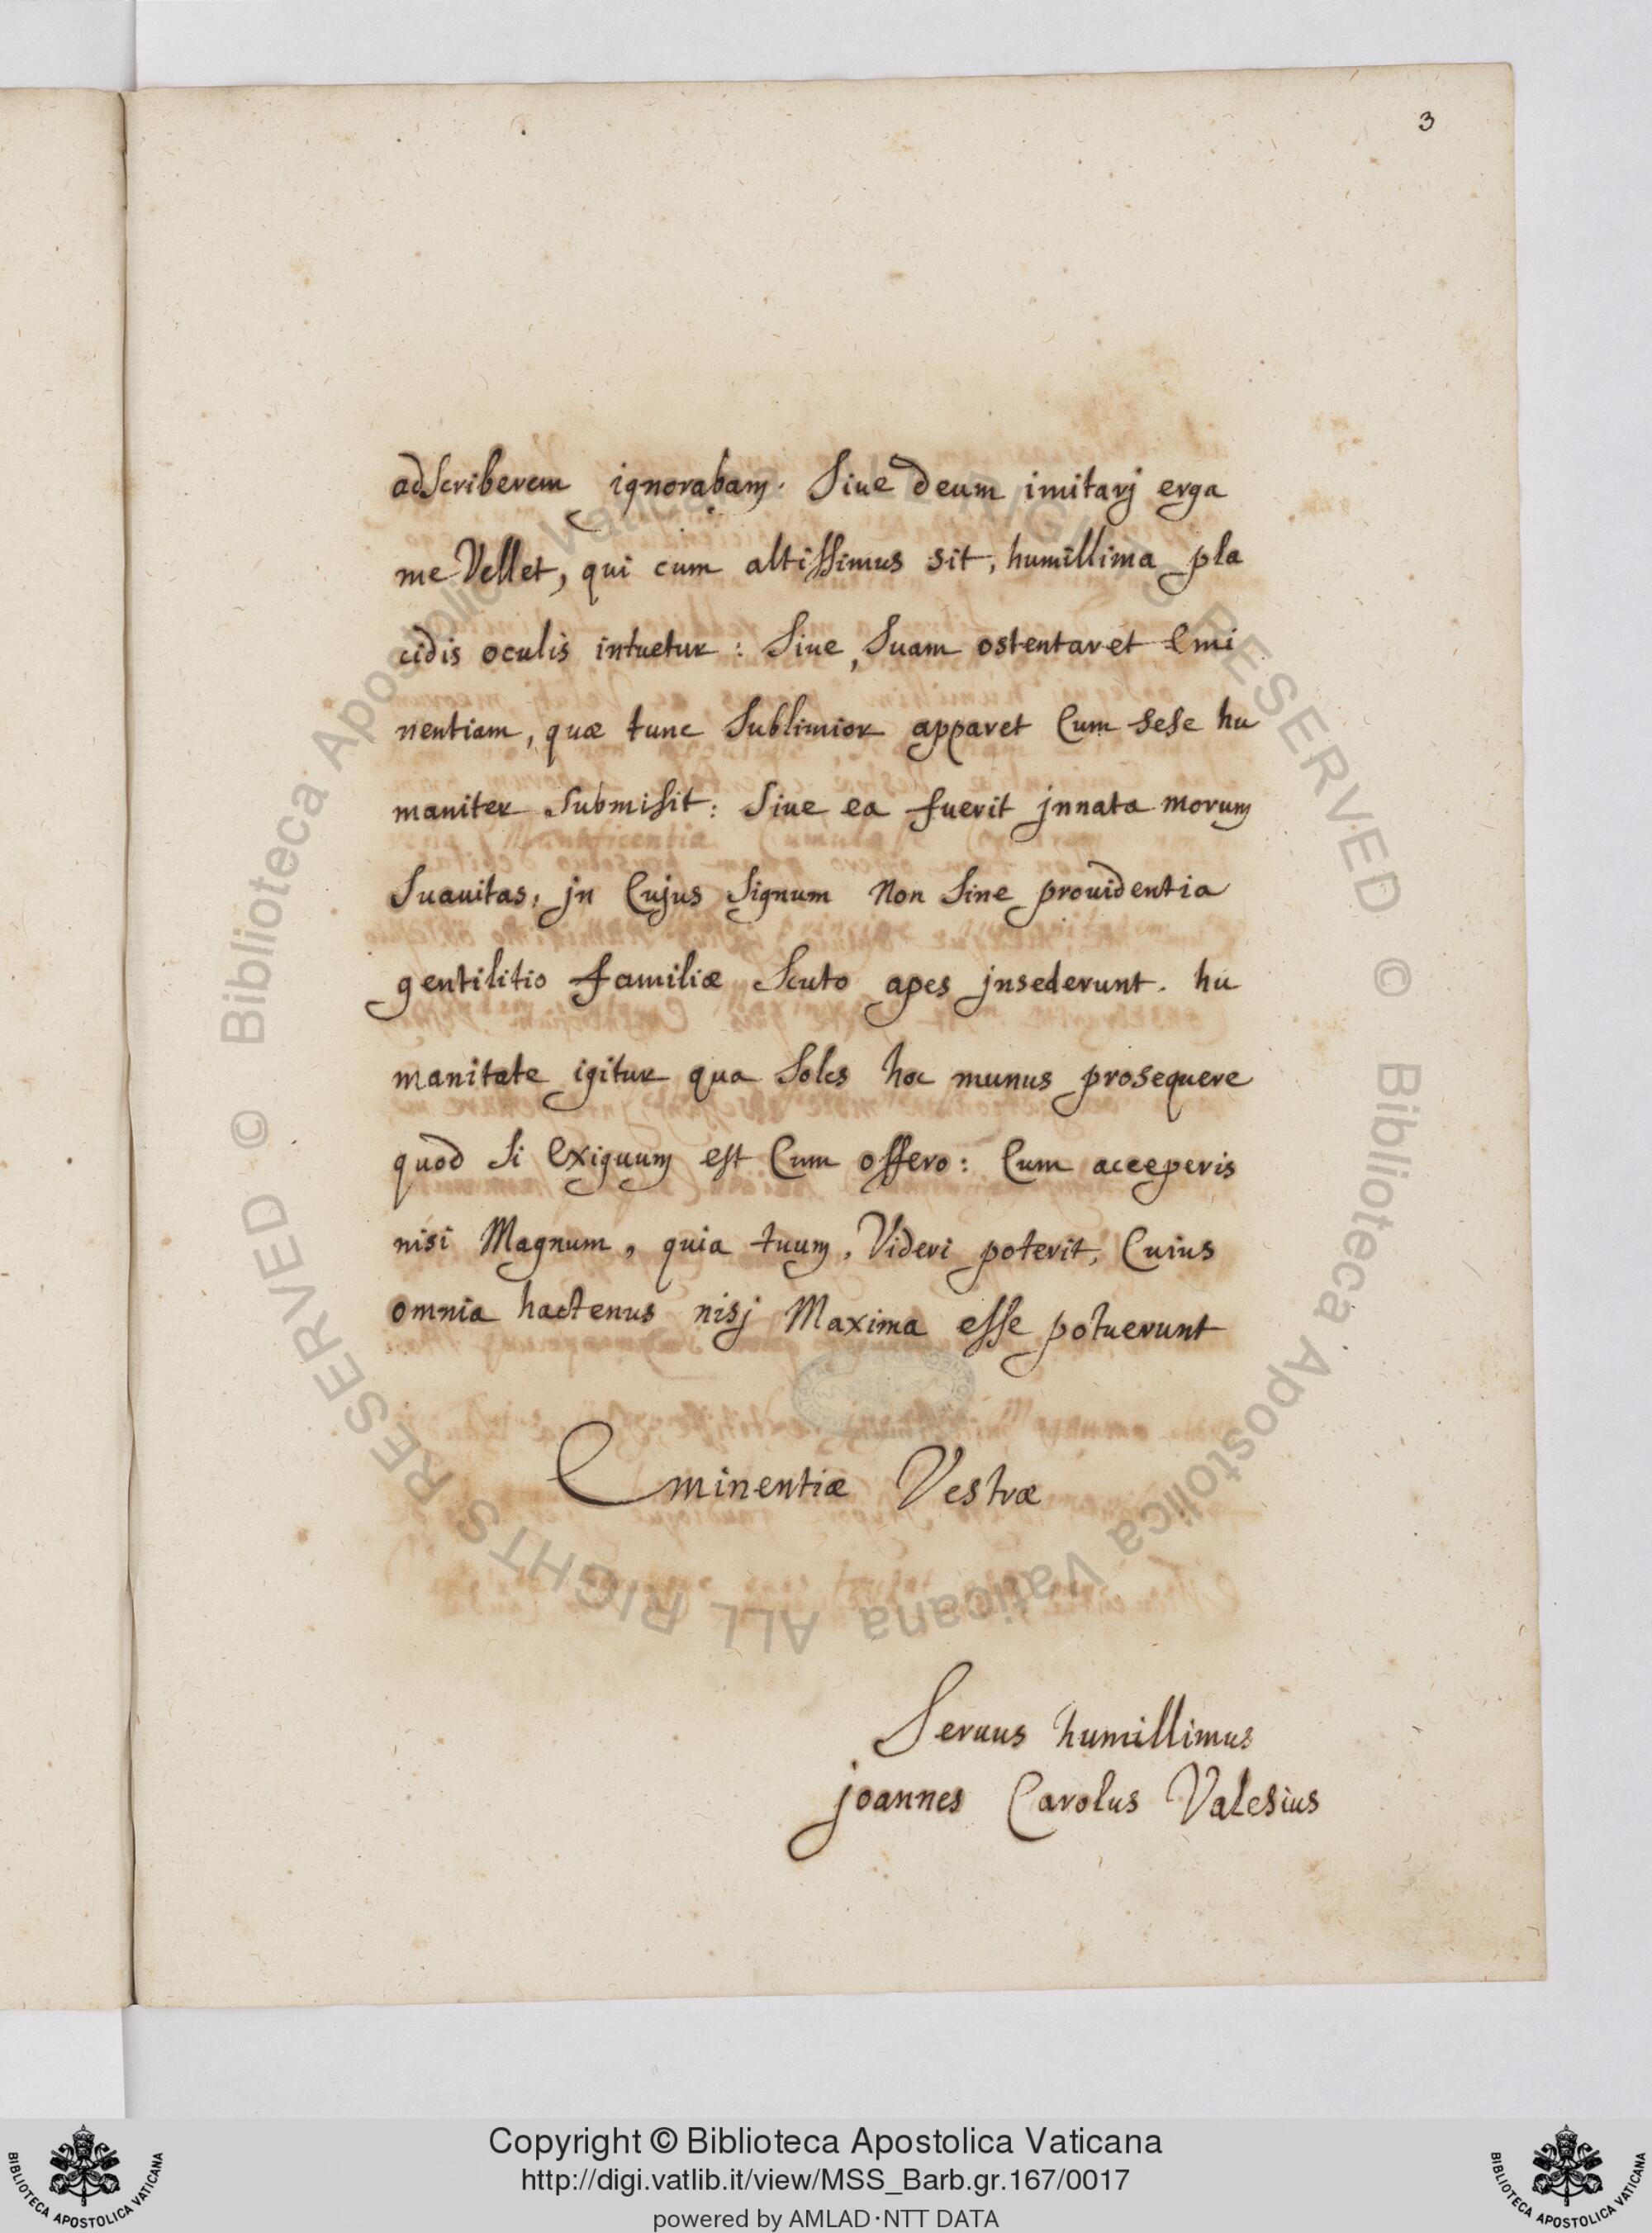 3
adscriberem ignorabam. Siue deum imitarj erga
me Vellet, qui cum altissimus sit, humillima pla
cidis oculis intuetur : Siue, Suam ostentaret Emi
nentiam, quæ tunc Sublimior apparet Cum sese hu
maniter Submisit: Siue ea fuerit jnnata morum
Suauitas, jn Cujus Signum Non Sine prouidentia
gentilitio familiæ Scuto apes jnsederunt. hu
manitate igitur qua Soles hoc munus prosequere
quod Si Exiguum est Cum offero: Cum acceperis
nisi Magnum, quia tuum, Videri poterit, Cuius
omnia hactenus nisj Maxima esse potuerunt
Eminentiæ Vestræ
Seruus humillimus
joannes Carolus Valesius
© Biblioteca Apostolica Vaticana ALL RIGHTS RESERVED © Biblioteca Apostolica Vaticana ALL RIGHTS RESERVED
Copyright © Biblioteca Apostolica Vaticana
http://digi.vatlib.it/view/MSS_Barb.gr.167/0017
powered by AMLAD·NTT DATA
BIBLIOTECA APOSTOLICA VATICANA
BIBLIOTECA APOSTOLICA VATICANA